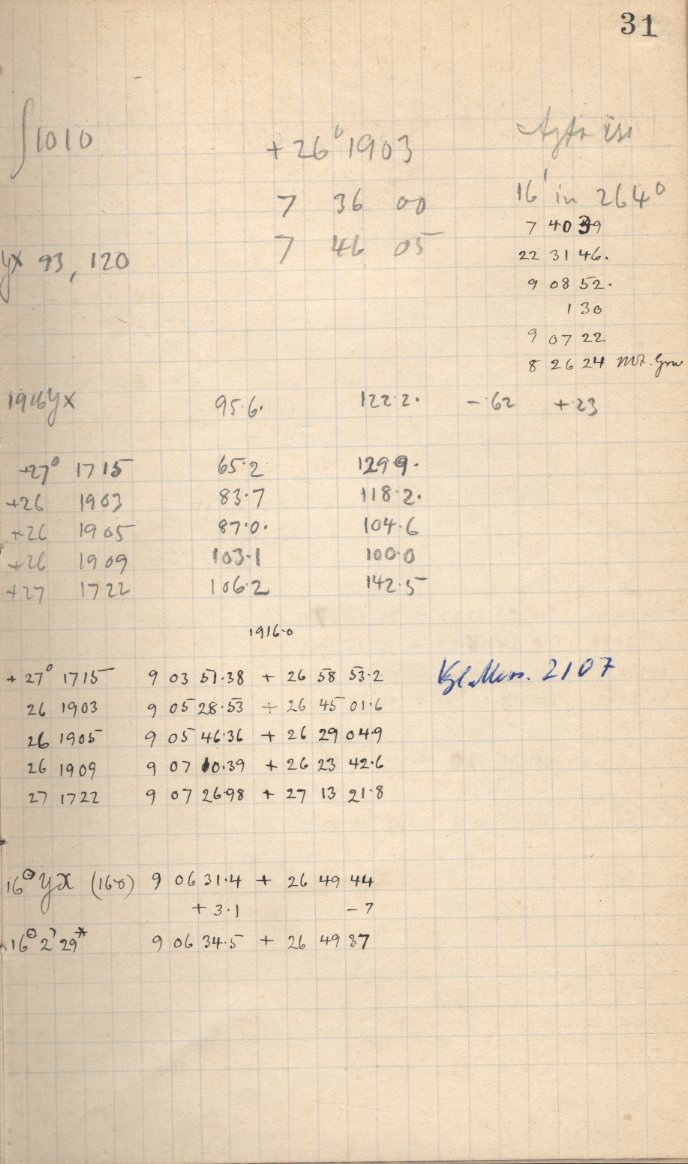 31
∫1010 +26° 1903
7 36 00 16' in 264°
7 46 05 7 40 39
yx 93, 120 22 31 46.
9 08 52.
1 30
9 07 22
8 26 24
1916 yx 95.6. 122.2. -.62 +.23
+27° 1715 65.2 129.9.
+26 1903 83.7 118.2.
+26 1905 87.0. 104.6
+26 1909 103.1 100.0
+27 1722 106.2 142.5
1916.0
+27° 1715 9 03 51.38 + 26 58 53.2 2107
26 1903 9 05 28.53 ÷ 26 45 01.6
26 1905 9 05 46.36 + 26 29 04.9
26 1909 9 07 10.39 + 26 23 42.6
27 1722 9 07 26.98 + 27 13 21.8
16⊙ yx (16.0) 9 06 31.4 + 26 49 44
+ 3.1 - 7
16⊙ 2' 29* 9 06 34.5 + 26 49 37